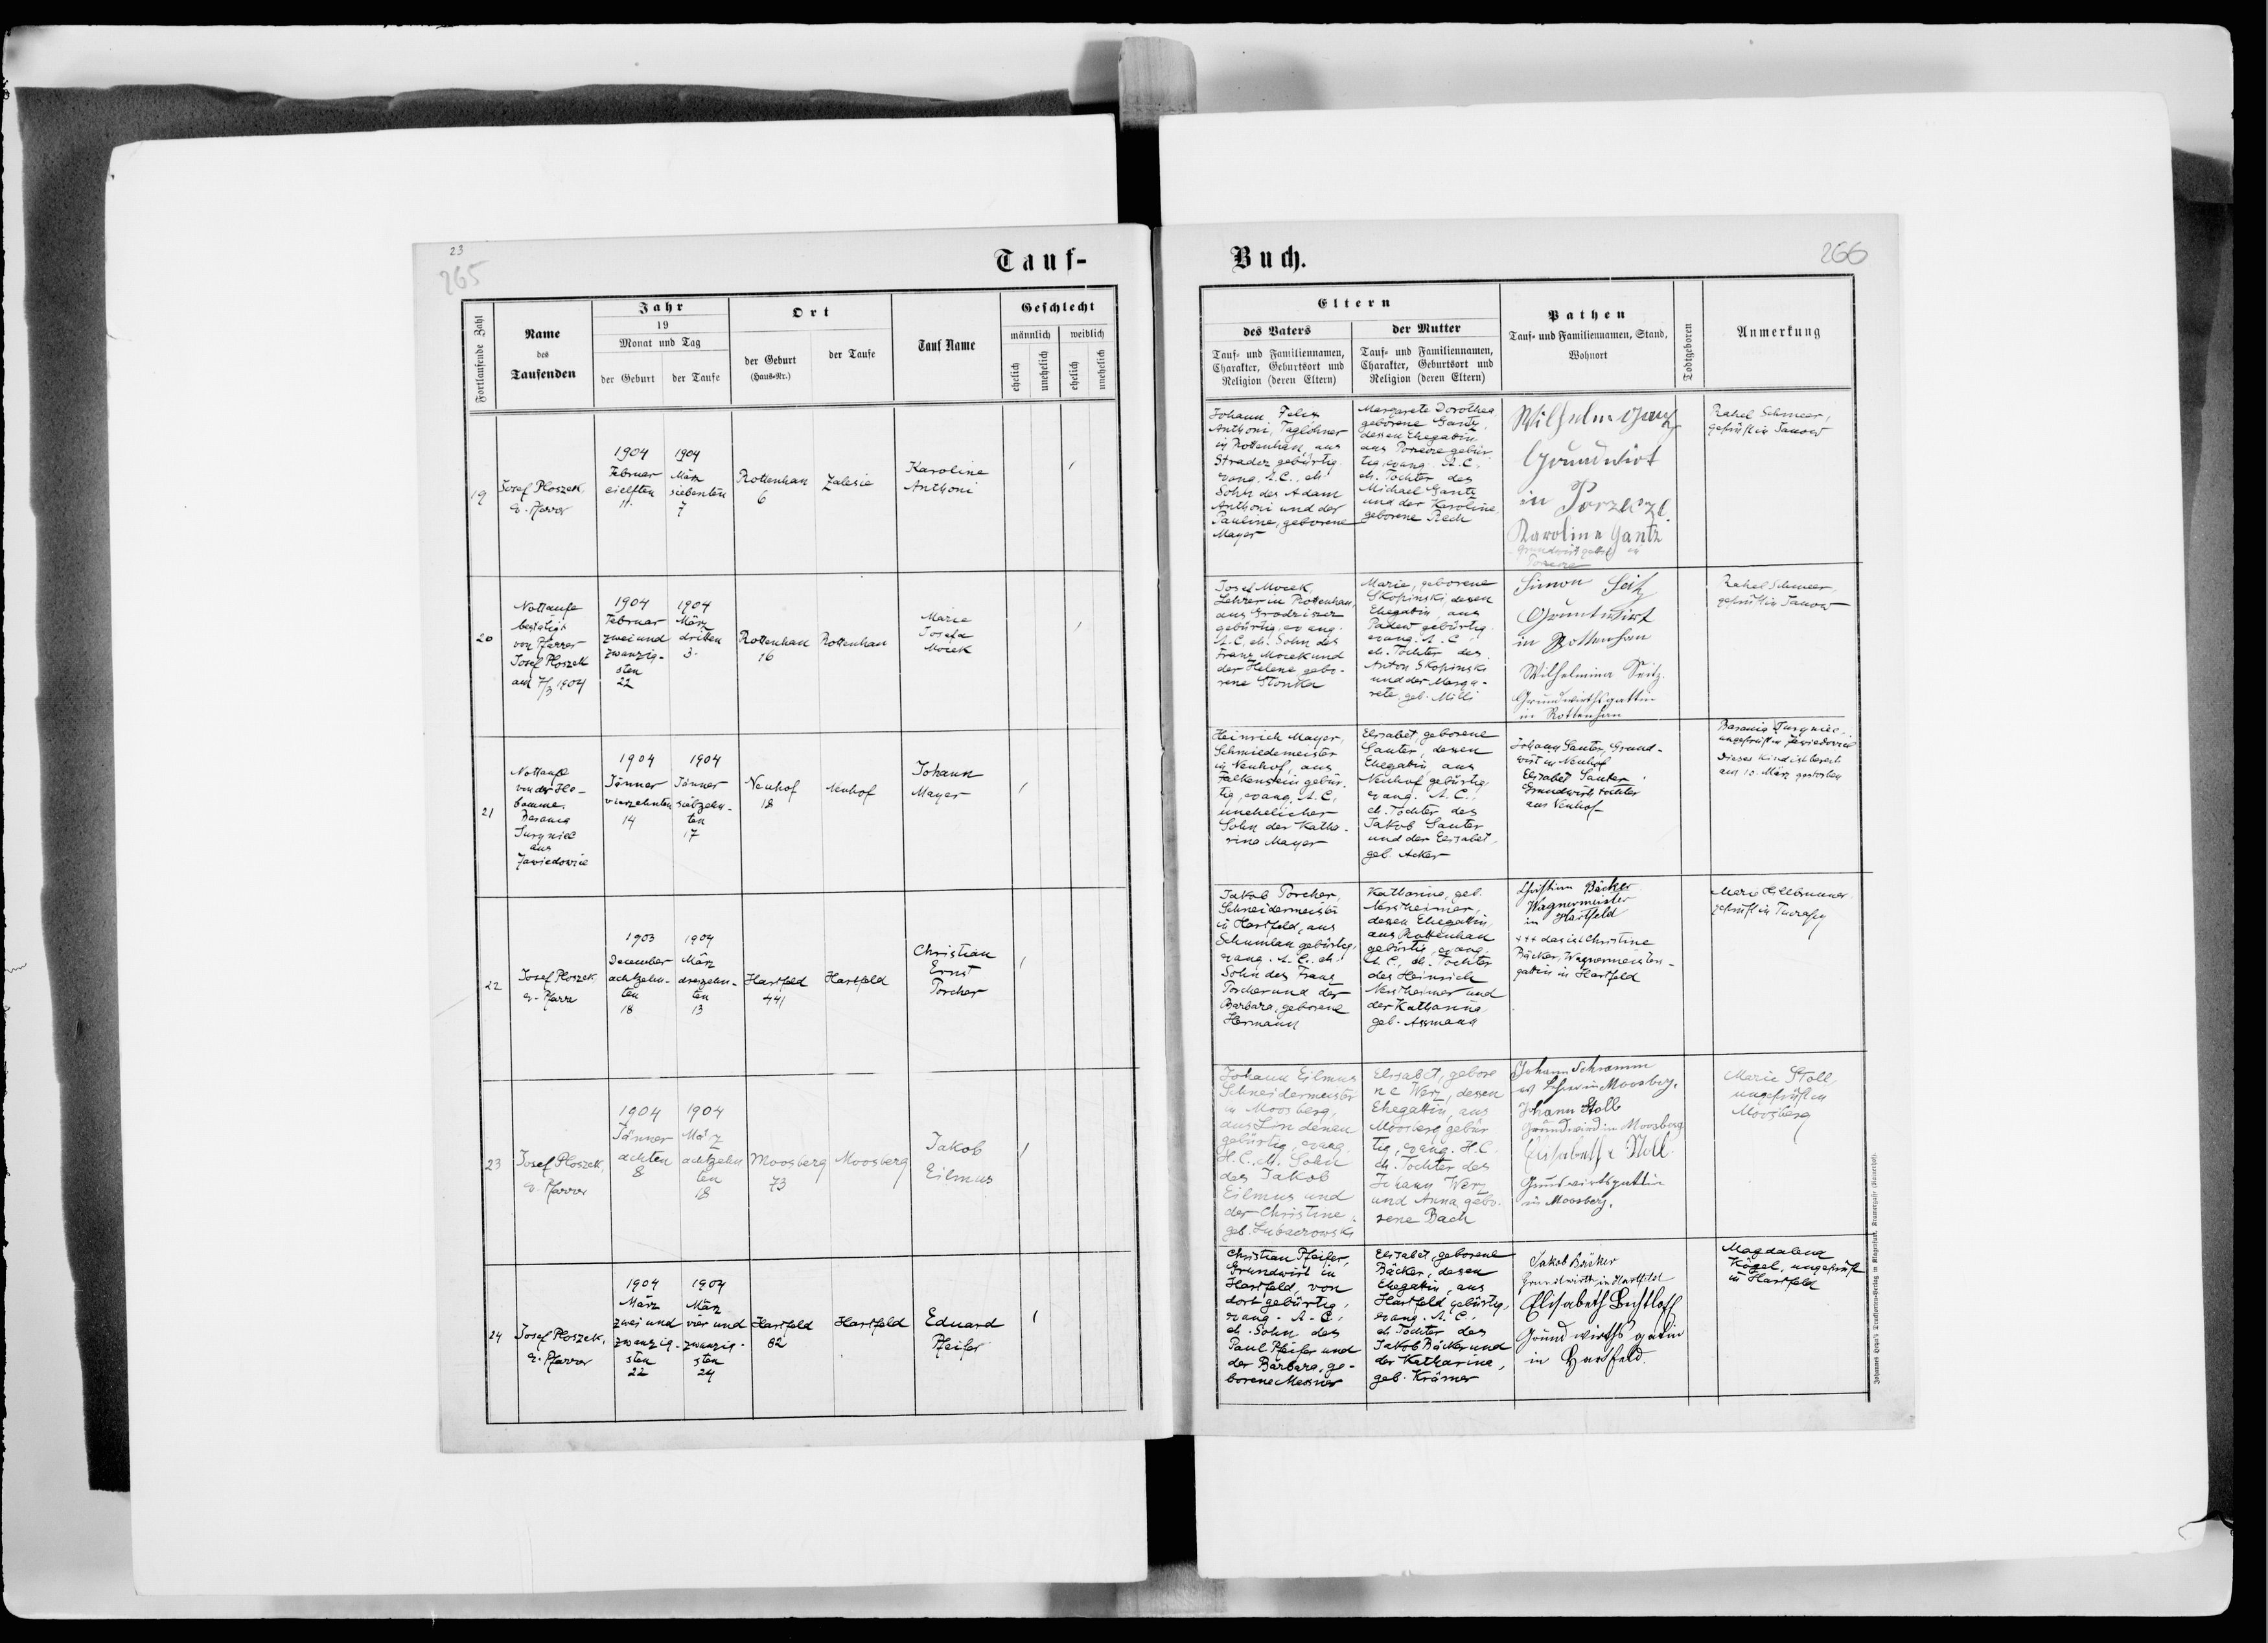 23
265
Tauf-
Fortlaufende Zahl
Name
des
Taufenden
Jahr
19
Monat und Tag
der Geburt
der Taufe
Ort
der Geburt
(Haus-Nr.)
der Taufe
Tauf Name
Geschlecht
männlich
weiblich
ehelich
unehelich
ehelich
unehelich
19
Josef Ploszek,
ev. Pfarrer
1904
Februar
eielften
11.
1904
März
siebenten
7
Rottenhan
6
Zalesie
Karoline
Anthoni
20
Nottaufe
bestätigt
von Pfarrer
Josef Ploszek
am 7/3 1904
1904
Februar
zwei und
zwanzig-
sten
22
1904
März
dritten
3.
Rottenhan
16
Rottenhan
Marie
Josefa
Mocek
21
Nottaufe
von der He-
bamme
aus
1904
Jänner
vierzehnten
14
1904
Jänner
siebzehn-
ten
17
Neuhof
18
Neuhof
Johann
Mayer
22
Josef Ploszek,
ev. Pfarrer
1903
December
achtzehn-
ten
18
1904
März
dreizehn-
ten
13
Hartfeld
441
Hartfeld
Christian
Ernst
Porcher
23
Josef Ploszek,
ev. Pfarrer
1904
Jänner
achten
8
1904
März
achtzehn
ten
18
Moosberg
73
Moosberg
Jakob
Eilmus
24
Josef Ploszek,
ev. Pfarrer
1904
März
zwei und
zwanzig-
sten
22
1904
März
vier und
zwanzig-
sten
24
Hartfeld
82
Hartfeld
Eduard
Pfeifer
Buch.
266
Eltern
des Vaters
Tauf- und Familiennamen,
Charakter, Geburtsort und
Religion (deren Eltern)
der Mutter
Tauf- und Familiennamen,
Charakter, Geburtsort und
Religion (deren Eltern)
Pathen
Tauf- und Familiennamen, Stand,
Wohnort
Todtgeboren
Anmerkung
Johann Felix
Anthoni, Taglöhner
in Rottenhan, aus
Stradcz gebürtig
evang. A.C., eh.
Sohn des Adam
Anthoni und der
Pauline, geborene
Mayer
Margarete Dorothea
geborene Gantz,
dessen Ehegattin
aus Porzecze gebür
tig, evang. A.C.
eh. Tochter des
Michael Gantz
und der Karoline,
geborene Rech
Wilhelm Ganz
Grundwirt
in
Karoline Gantz
Rahel Schmeer,
geprüft in Janow
Josef Mocek,
Lehrer in Rottenhan,
aus
gebürtig, evang.
A.C., eh. Sohn des
Franz Mocek und
der Helene gebo-
rene Slonka
Marie, geborene
Skopinski, dessen
Ehegattin, aus
Padew gebürtig
evang. A.C.
eh. Tochter des
Anton Skopinski
und der Marga-
rete, geb. Milli
Simon Seitz
Grundwirt
in Rottenhan
Wilhelmina Seitz.
Grundwirthsgattin
in Rottenhan
Rahel Schmeer,
geprüft in Janow
Heinrich Mayer,
Schmiedemeister
in Neuhof, aus
Falkenstein gebür-
tig, evang. A.C.,
unehelicher
Sohn der Katha-
rina Mayer
Elisabet, geborene
Sauter, dessen
Ehegattin, aus
Neuhof gebürtig
evang. A.C.,
eh. Tochter des
Jakob Sauter
und der Elisabet,
geb. Acker
Johann Sauter, Grund-
wirt in Neuhof
Elisabet Sauter
Grundwirts tochter
aus Neuhof
Dieses Kind ist bereits
am 10. März gestorben
Jakob Porcher,
Schneidermeister
in Hartfeld, aus
Schumlau gebürtig,
evang. A.C., eh.
Sohn des Franz
Porcher und der
Barbara, geborene
Hermann
Katharina, geb.
dessen Ehegattin,
aus Rottenhan
gebürtig, evang.
A.C., eh. Tochter
des Heinrich
und
der Katharina
geb. Assmann
Christian Bäcker
Wagnermeister
in Hartfeld
+++ das ist Christine
Bäcker, Wagnermeisters-
gattin in Hartfeld
geprüft in
Johann Eilmus
Schneidermeister
in Moosberg,
aus Lindenau
gebürtig, evang.
H.C., eh. Sohn
des Jakob
Eilmus und
der Christine,
geb. Lubaczowski
Elisabet, gebore
ne Werz, dessen
Ehegattin, aus
Moosberg gebür
tig, evang. H.C.
eh. Tochter des
Johann Werz
und Anna, gebo-
rene Bach
Johann Schramm
ev. Lehrer in Moosberg,
Johann Stoll
Grundwird in Moosberg
Elisabetha Stoll.
Grundwirtsgattin
in Moosberg.
Marie Stoll,
ungeprüft in
Moosberg
Christian Pfeifer,
Grundwirt in
Hartfeld, von
dort gebürtig,
evang. A.C.,
eh. Sohn des
Paul Pfeifer und
der Barbara, ge-
borene Messner
Elisabet, geborene
Bäcker, dessen
Ehegattin, aus
Hartfeld gebürtig,
evang. A.C.,
eh. Tochter des
Jakob Bäcker und
der Katharina,
geb. Krämer
Jakob Bäcker
Grundwirth in Hartfeld
Elisabeth Bechtloff
Grundwirths gatin
in Hartfeld.
Magdalena
Kögel, ungeprüft
in Hartfeld